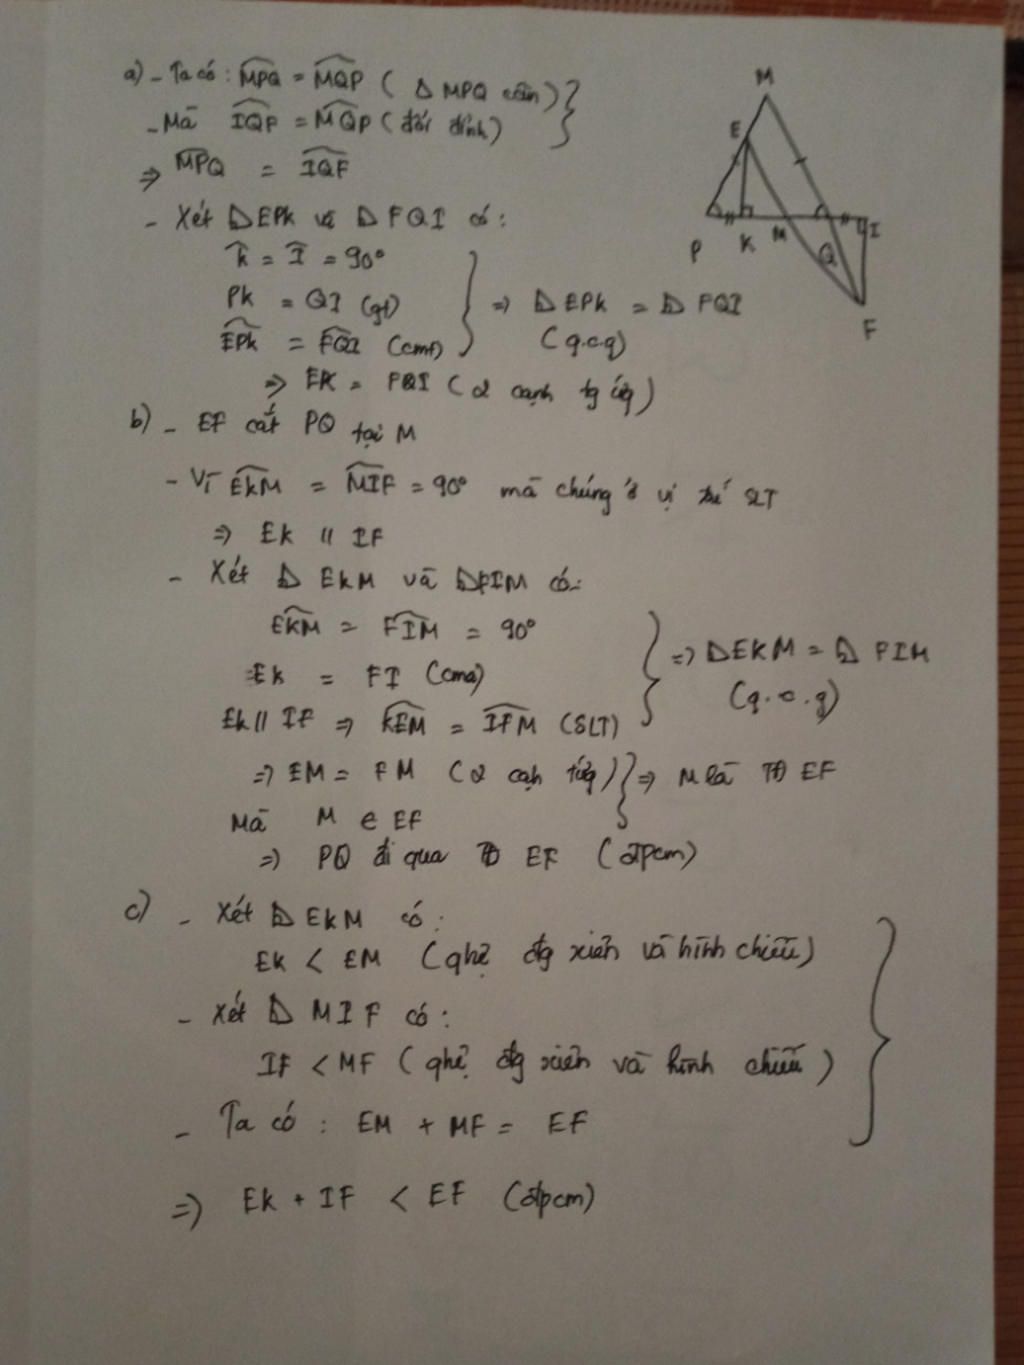 a) - Ta có : MPQ = MQP ( Δ MPQ cân )
- Mà IQF = MQP ( đối đỉnh )
=> MPQ = IQF
- Xét Δ EPK và Δ FQI có :
K = I = 90°
PK = QI (gt)
EPK = FQI (cmt)
=> Δ EPK = Δ FQI
(g.c.g)
=> EK = FQI ( 2 cạnh tg ứg )
b) - EF cắt PQ tại M
- Vì EKM = MIF = 90° mà chúng ở vị trí SLT
=> EK // IF
- Xét Δ EKM và Δ FIM có :
EKM = FIM = 90°
EK = FI (cma)
EK // IF => KEM = IFM (SLT)
=> Δ EKM = Δ FIM
(g.c.g)
=> EM = FM ( 2 cạh tứg ) => M là TĐ EF
Mà M ∈ EF
=> PQ đi qua TĐ EF (đpcm)
c) - Xét Δ EKM có :
EK < EM ( qhệ đg xiên và hình chiếu )
- Xét Δ MIF có :
IF < MF ( qhệ đg xiên và hình chiếu )
- Ta có : EM + MF = EF
=> EK + IF < EF (đpcm)
M
E
P
K
M
Q
I
F